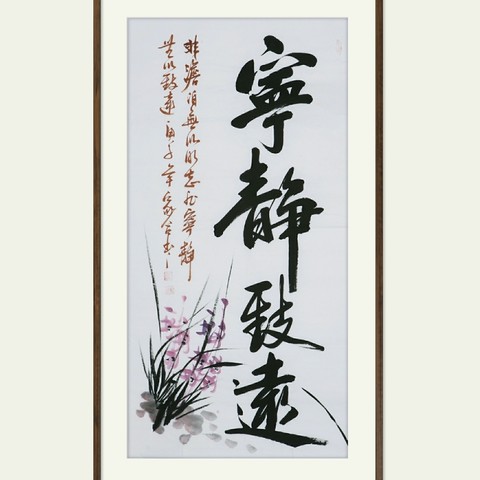 寧靜致遠
非澹泊無以明志非寧靜
無以致遠庚子年書